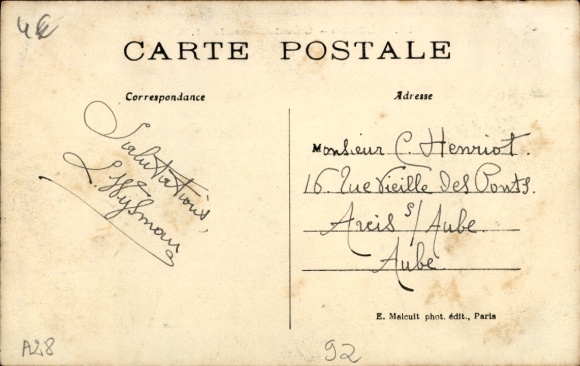 4€
CARTE POSTALE
Correspondance
Adresse
Salutations,
L. Wysman
Monsieur C. Henriot.
16. Rue Vieille des Ponts.
Arcis s/ Aube
Aube
E. Malcuit phot. édit., Paris
A28
92